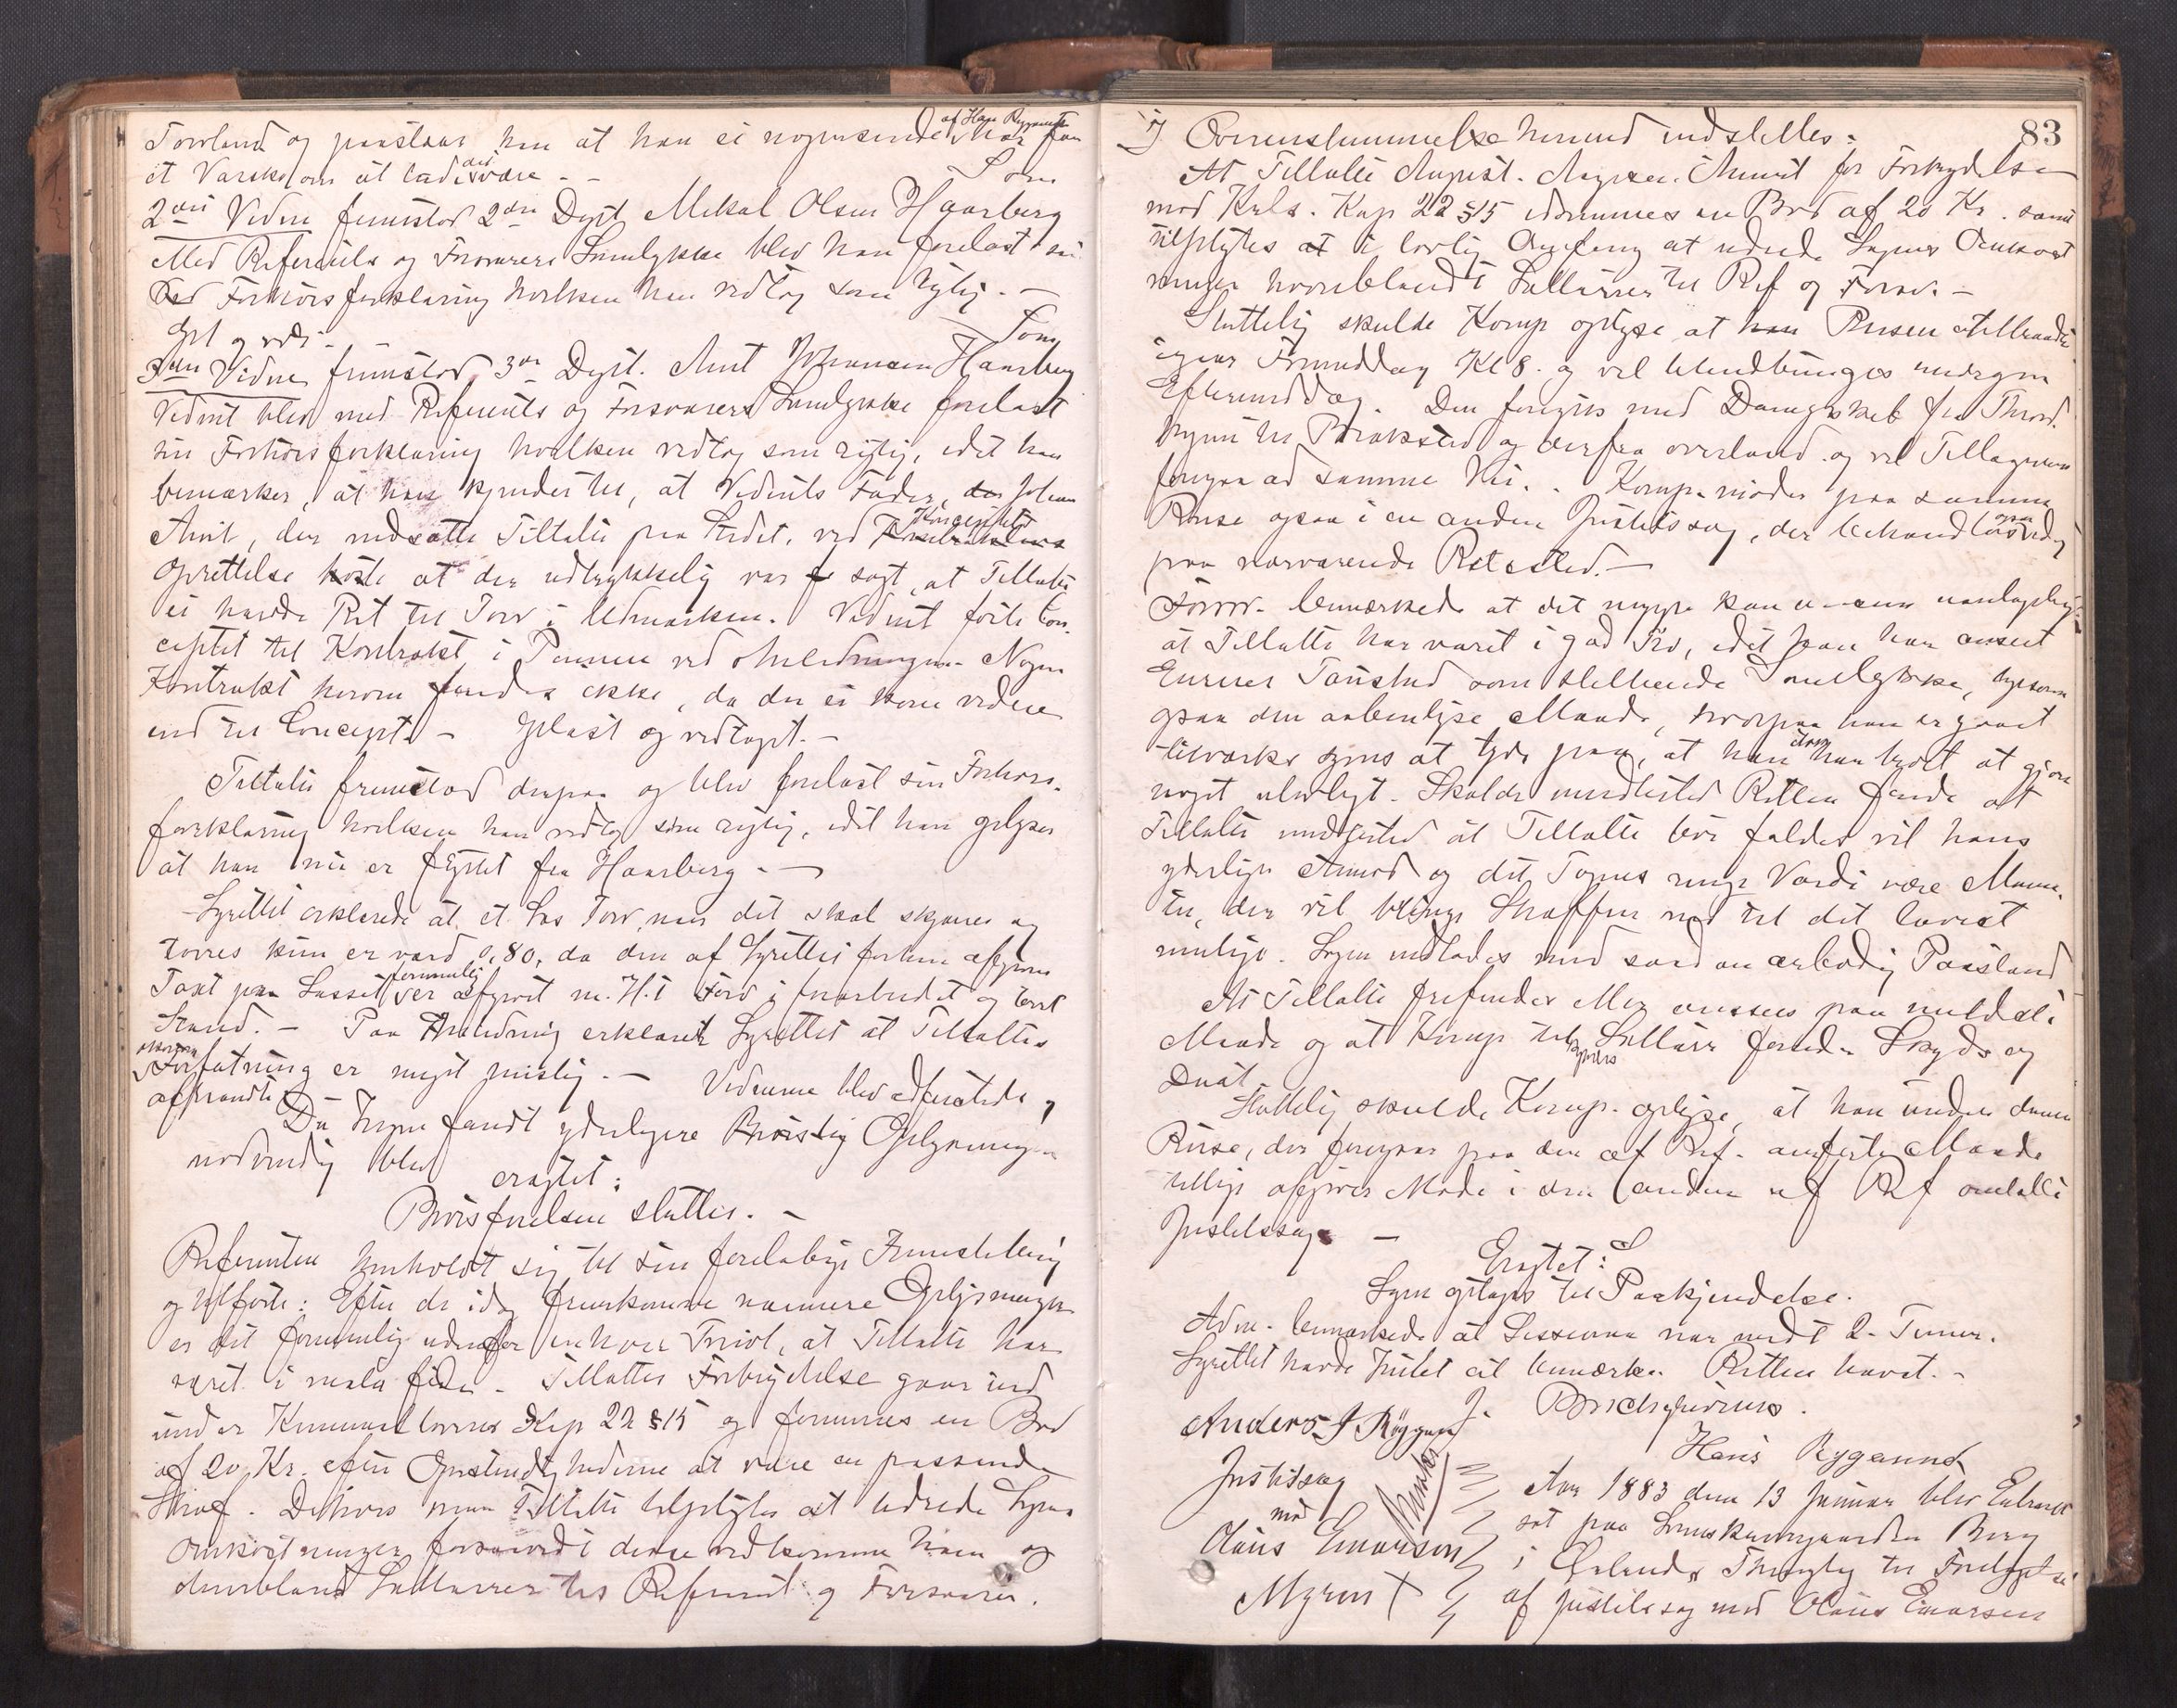 Torvland og paastaar han at han ei nogensinde af Hans Rygaunet har faaet
et Varsko om at lade det være. - Som
2det Vidne fremstod 2den Dept. Mikal Olsen Haarberg
Med Referents og Forsvarers Samtykke blev han forelæst sin
Forhørsforklaring hvilken han vedtog som rigtig. -
Opl. og vedt. - Som
3die Vidne fremstod 3die Dept. Arnt Johansen Haarberg
Vidnet blev med Referents og Forsvarers Samtykke forelæst
sin Forhørsforklaring hvilken vedtog som rigtig, idet han
bemærker, at han kjender til, at Vidnets Fader, Johan
Arnt, der indsatte Tiltalte paa Stedet, ved Konceptets
Oprettelse at der udtrykkelig var sagt, at Tiltalte
ei havde Ret til Torv i Udmarken. Vidnet førte Con-
ceptet til Kontrakt i Pennen ved Anledningen. Nogen
Kontrakt herom fandes ikke, da der ei kom videre
end til Concept. - Oplæst og vedtaget. -
Tiltalte fremstod derpaa og blev forelæst sin Forhørs-
forklaring hvilken han vedtog som rigtig, idet han oplyser
at han nu er flyttet fra Haarberg. -
Lagrettet erklærede at et Læs Torv, naar det skal skjæres og
tørres kun er værd 0,80, da den af Lagrettet forhen afgivne
Taxt paa Læsset formentlig er afgivet m. H. t. Torv i forarbeidet og tørret
Stand. - Paa Anledning erklærede Lagrettet at Tiltaltes
økonom. Forfatning er meget mislig. - Vidnerne blev edfæstede og
aftraadte
Da Ingen fandt yderligere Oplysninger
nødvendig blev eragtet:
Bevisførelsen sluttes. -
Referenten henholdt sig til sin foreløbige Fremstilling
og tilføiede: Efter de idag fremkomne nærmere Oplysninger
er det formentlig udenfor enhver Tvivl, at Tiltalte har
været i mala fides. Tiltaltes Forbrydelse gaar ind
under Kriminallovens Kap 22 § 15 og formenes en Bod
af 20 Kr. efter Omstændighederne at være en passende
Straf. Derhos maa Tiltalte tilpligtes at udrede Sagens
Omkostninger forsaavidt denne vedkomme ham og
deriblandt Sallarier til Referent og Forsvarer.
83
I Overensstemmelse hermed indstilles:
At Tiltalte August Arnt for Forbrydelse
mod Krls. Kap 22 § 15 idømmes en Bod af 20 Kr. samt
tilpligtes i lovlig Omfang at udrede Sagens Omkost
ninger hvoriblandt Sallarier til Ref og Forsv. -
Sluttelig skulde Komp oplyse at Reisen tiltraadtes
igaar Formiddag Kl 8. og vil tilendebringes imorgen
Eftermiddag. Den foregik med Dampskib fra Thrond-
hjem til Brækstad og derfra overland og vil Tilbagereisen
foregaa ad samme Vei. - Komp. møder paa samme
Reise ogsaa i en anden Justitssag, der behandles ogsaa idag
paa nærværende Retssted. -
Forsv. bemærkede at det neppe kan ansees
at Tiltalte har været i god Tro, idet han har anseet
Eierens Taushed som stiltiende Samtykke, ligesom
ogsaa den aabenlyse Maade, hvorpaa han er gaaet
tilværks synes at tyde paa, at han ikke har troet at gjøre
noget ulovligt. Skulde imidlertid Retten finde at
Tiltalte imidlertid at Tiltalte bør fældes vil hans
yderlige Armod og det Tagnes ringe Værdi være Momen-
ter, der vil bringe Straffen ned til det lavest
mulige. Sagen indlades med saadan ærbødig Paastand
At Tiltalte frifindes eller ansees paa mildeste
Maade og at Komp tilkjendes Sallær foruden Skyds og
Diæt
Sluttelig skulde Komp. oplyse, at han under denne
Reise, der foregaar paa den af Ref. anførte Maade
tillige afgiver Møde i den anden af Ref omtalte
Justitssag. -
Eragtet:
Sagen optages til Paakjendelse.
Adm. bemærkede at Sessionen var medt 2 Timer.
Lagrettet havde Intet at bemærke. Retten hævet. -
Anders J Ryggen
Hans Rygaunet
Justitssag
mod
Olaus Einarsen
Myren
Aar 1883 den 13 Januar blev Extraret
sat paa Lensmandsgaarden Berg
i Ørlandets Thinglag til Foretagelse
af Justitssag mod Olaus Einarsen